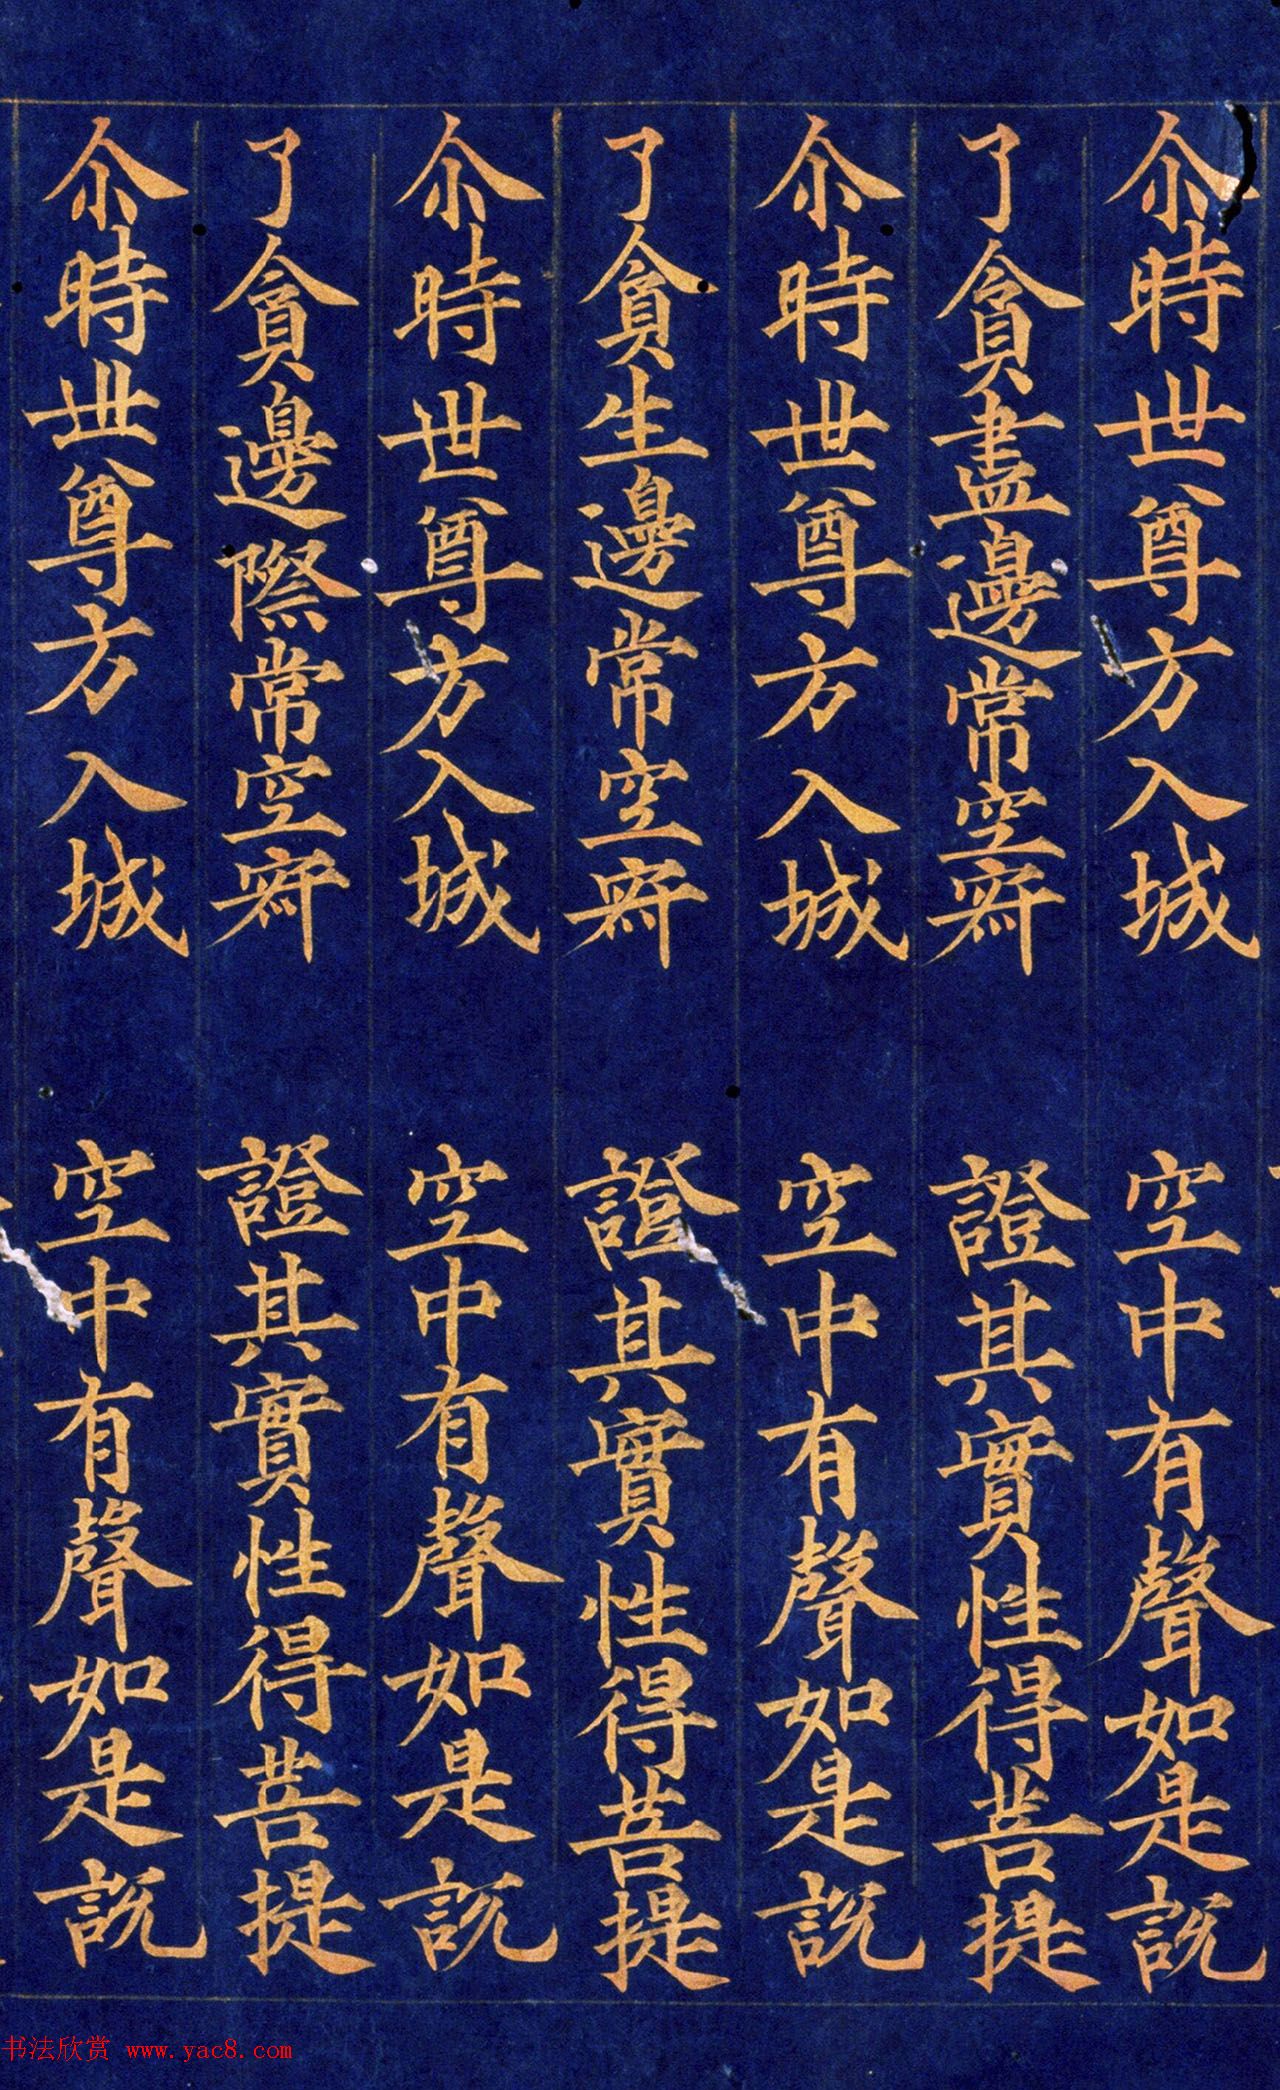 尒時世尊方入城 空中有聲如是說
了貪盡邊常空寂 證其實性得菩提
尒時世尊方入城 空中有聲如是說
了貪生邊常空寂 證其實性得菩提
尒時世尊方入城 空中有聲如是說
了貪邊際常空寂 證其實性得菩提
尒時世尊方入城 空中有聲如是說
书法欣赏 www.yac8.com